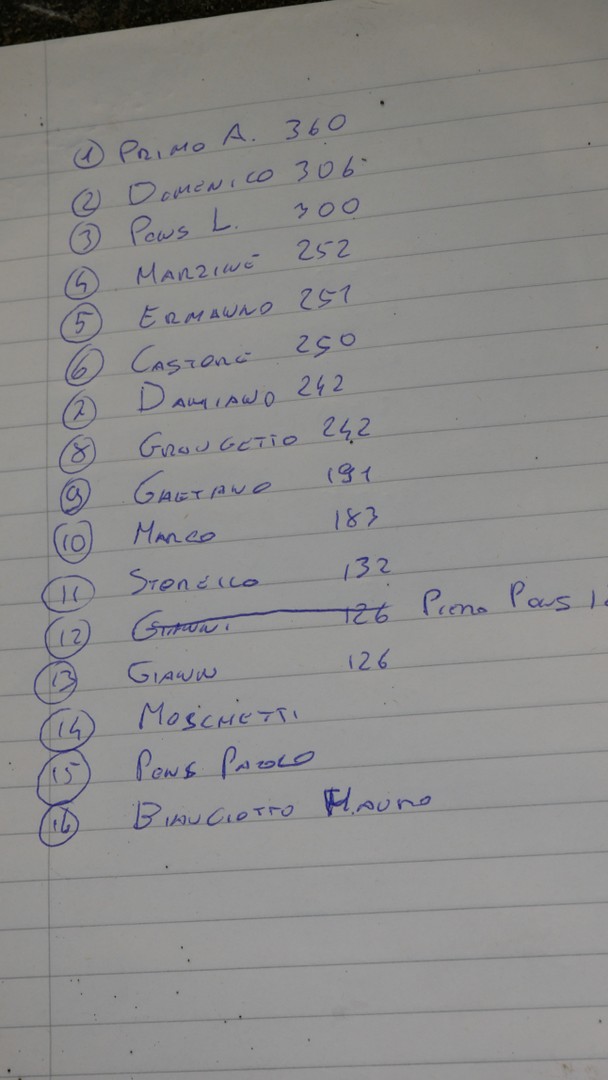 1 PRIMO A. 360
2 DOMENICO 306
3 PONS L. 300
4 MARZINE 252
5 ERMANNO 251
6 CASTORE 250
7 DAMIANO 242
8 242
9 GAETANO 191
10 MARCO 183
11 STORELLO 132
12 GIANNI 126 PIERO PONS
13 GIANN 126
14 MOSCHETTI
15 PONS PAOLO
16 BIANCIOTTO MAURO